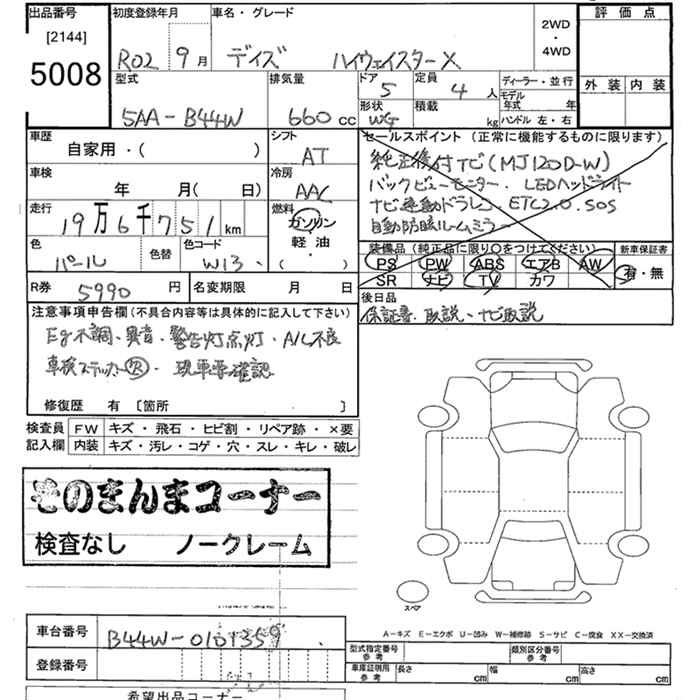 出品番号 初度登録年月 車名・グレード 2WD ・ 4WD 評価点
[2144]
5008
R02 9月 デイズ ハイウェイスターX
外装 内装
型式 排気量 ドア 定員 ディーラー・並行
5AA-B44W 660cc 5 4人
モデル年式 年
形状 積載 ハンドル 左・右
WG kg
車歴 シフト セールスポイント (正常に機能するものに限ります)
自家用・( ) AT
純正後付ナビ(MJ120D-W)
バックビューモニター・LEDヘッドライト
ナビ連動ドラレコ・ETC2.0・SOS
自動防眩ルームミラー
車検 冷房
年 月( 日) AAC
走行 燃料
19万6千751km
ガソリン
軽油・
( )
色 色替 色コード
パール W13
装備品 (純正品に限り○をつけてください) 新車保証書
PS PW ABS エアB AW
SR ナビ TV カワ
有・無
R券 名変期限 月 日
5990円
後日品
保証書・取説・ナビ取説
注意事項申告欄 (不具合内容等は具体的に記入して下さい)
Eg不調・異音・警告灯点灯・A/C不良
車検ステッカー・現車要確認
修復歴 有 〔箇所 〕
検査員 FW キズ・飛石・ヒビ割・リペア跡・×要
記入欄 内装 キズ・汚レ・コゲ・穴・スレ・キレ・破レ
そのまんまコーナー
検査なし ノークレーム
スペア
A-キズ E-エクボ U-凹み W-補修跡 S-サビ C-腐食 XX-交換済
車台番号 B44W-0101359
型式指定番号 参考 類別区分番号 参考
登録番号
車庫証明用 参考 長さ cm 幅 cm 高さ cm
希望出品コーナー